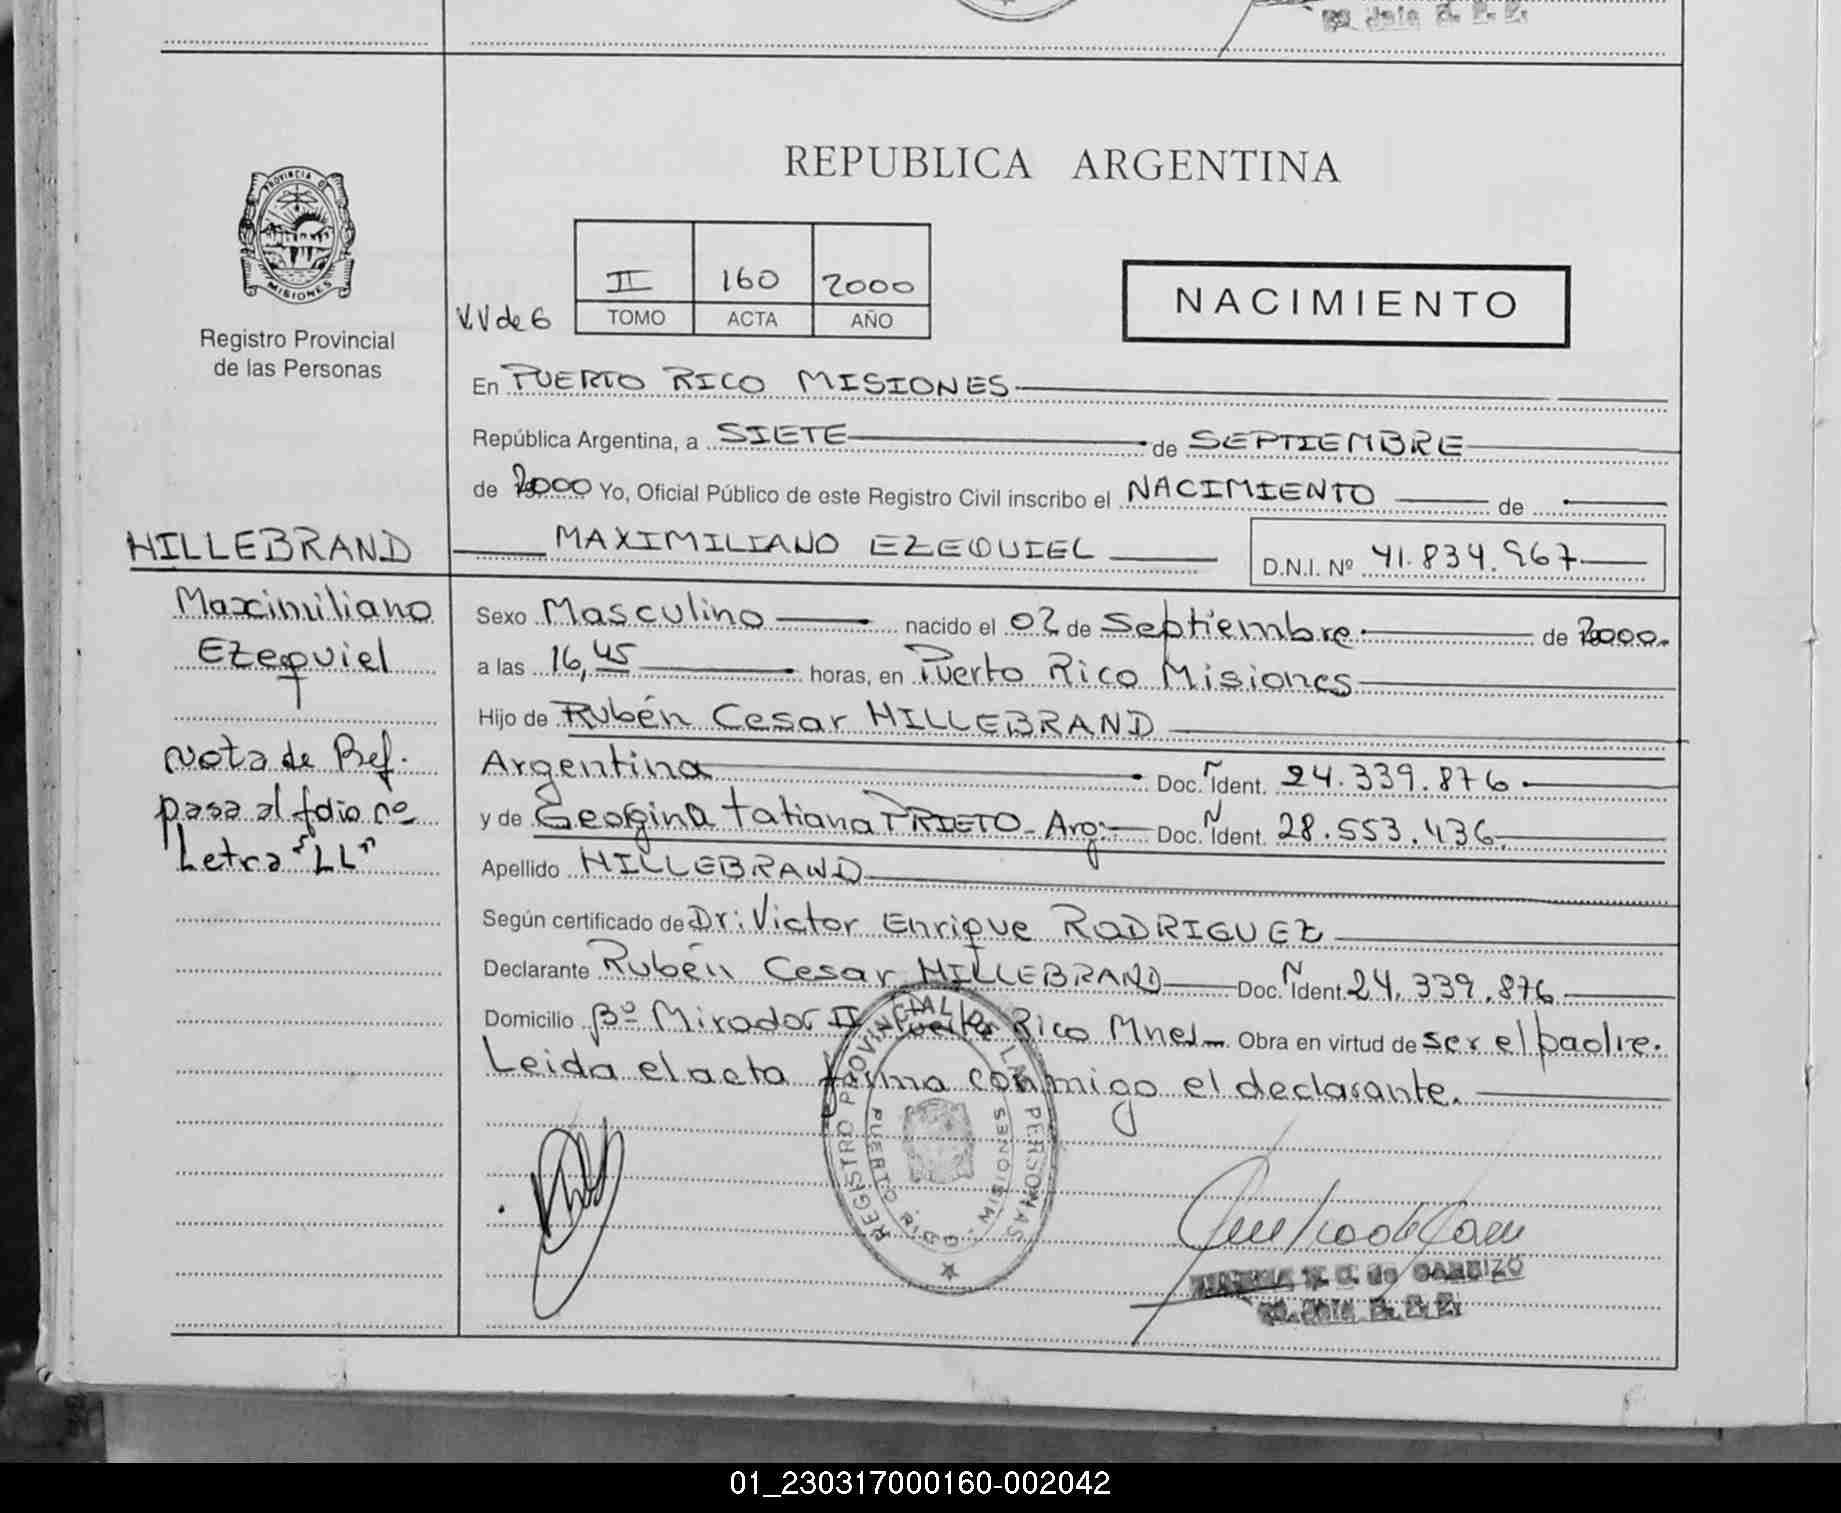 REPUBLICA ARGENTINA
PROVINCIA DE
MISIONES
Registro Provincial
de las Personas
V.V de 6
II 160 2000
TOMO ACTA AÑO
NACIMIENTO
En PUERTO RICO MISIONES
República Argentina, a SIETE de SEPTIEMBRE
de 2000 Yo, Oficial Público de este Registro Civil inscribo el NACIMIENTO de
MAXIMILIANO EZEQUIEL D.N.I. Nº 41.834.967
HILLEBRAND
Maximiliano
Ezequiel
Nota de Ref.
pasa al folio nº
Letra "LL"
Sexo Masculino nacido el 02 de Septiembre de 2000.
a las 16,45 horas, en Puerto Rico Misiones
Hijo de Rubén Cesar HILLEBRAND
Argentina Doc. N Ident. 24.339.876
y de Georgina Tatiana PRIETO - Arg. Doc. N Ident. 28.553.436.
Apellido HILLEBRAND
Según certificado de Dr: Victor Enrique RODRIGUEZ
Declarante Rubén Cesar HILLEBRAND Doc. N Ident. 24.339.876
Domicilio Bº Mirador II Puerto Rico Mnes. Obra en virtud de ser el padre.
Leida el acta firma conmigo el declarante.
REGISTRO PROVINCIAL DE LAS PERSONAS
PUERTO RICO - MISIONES
01_230317000160-002042